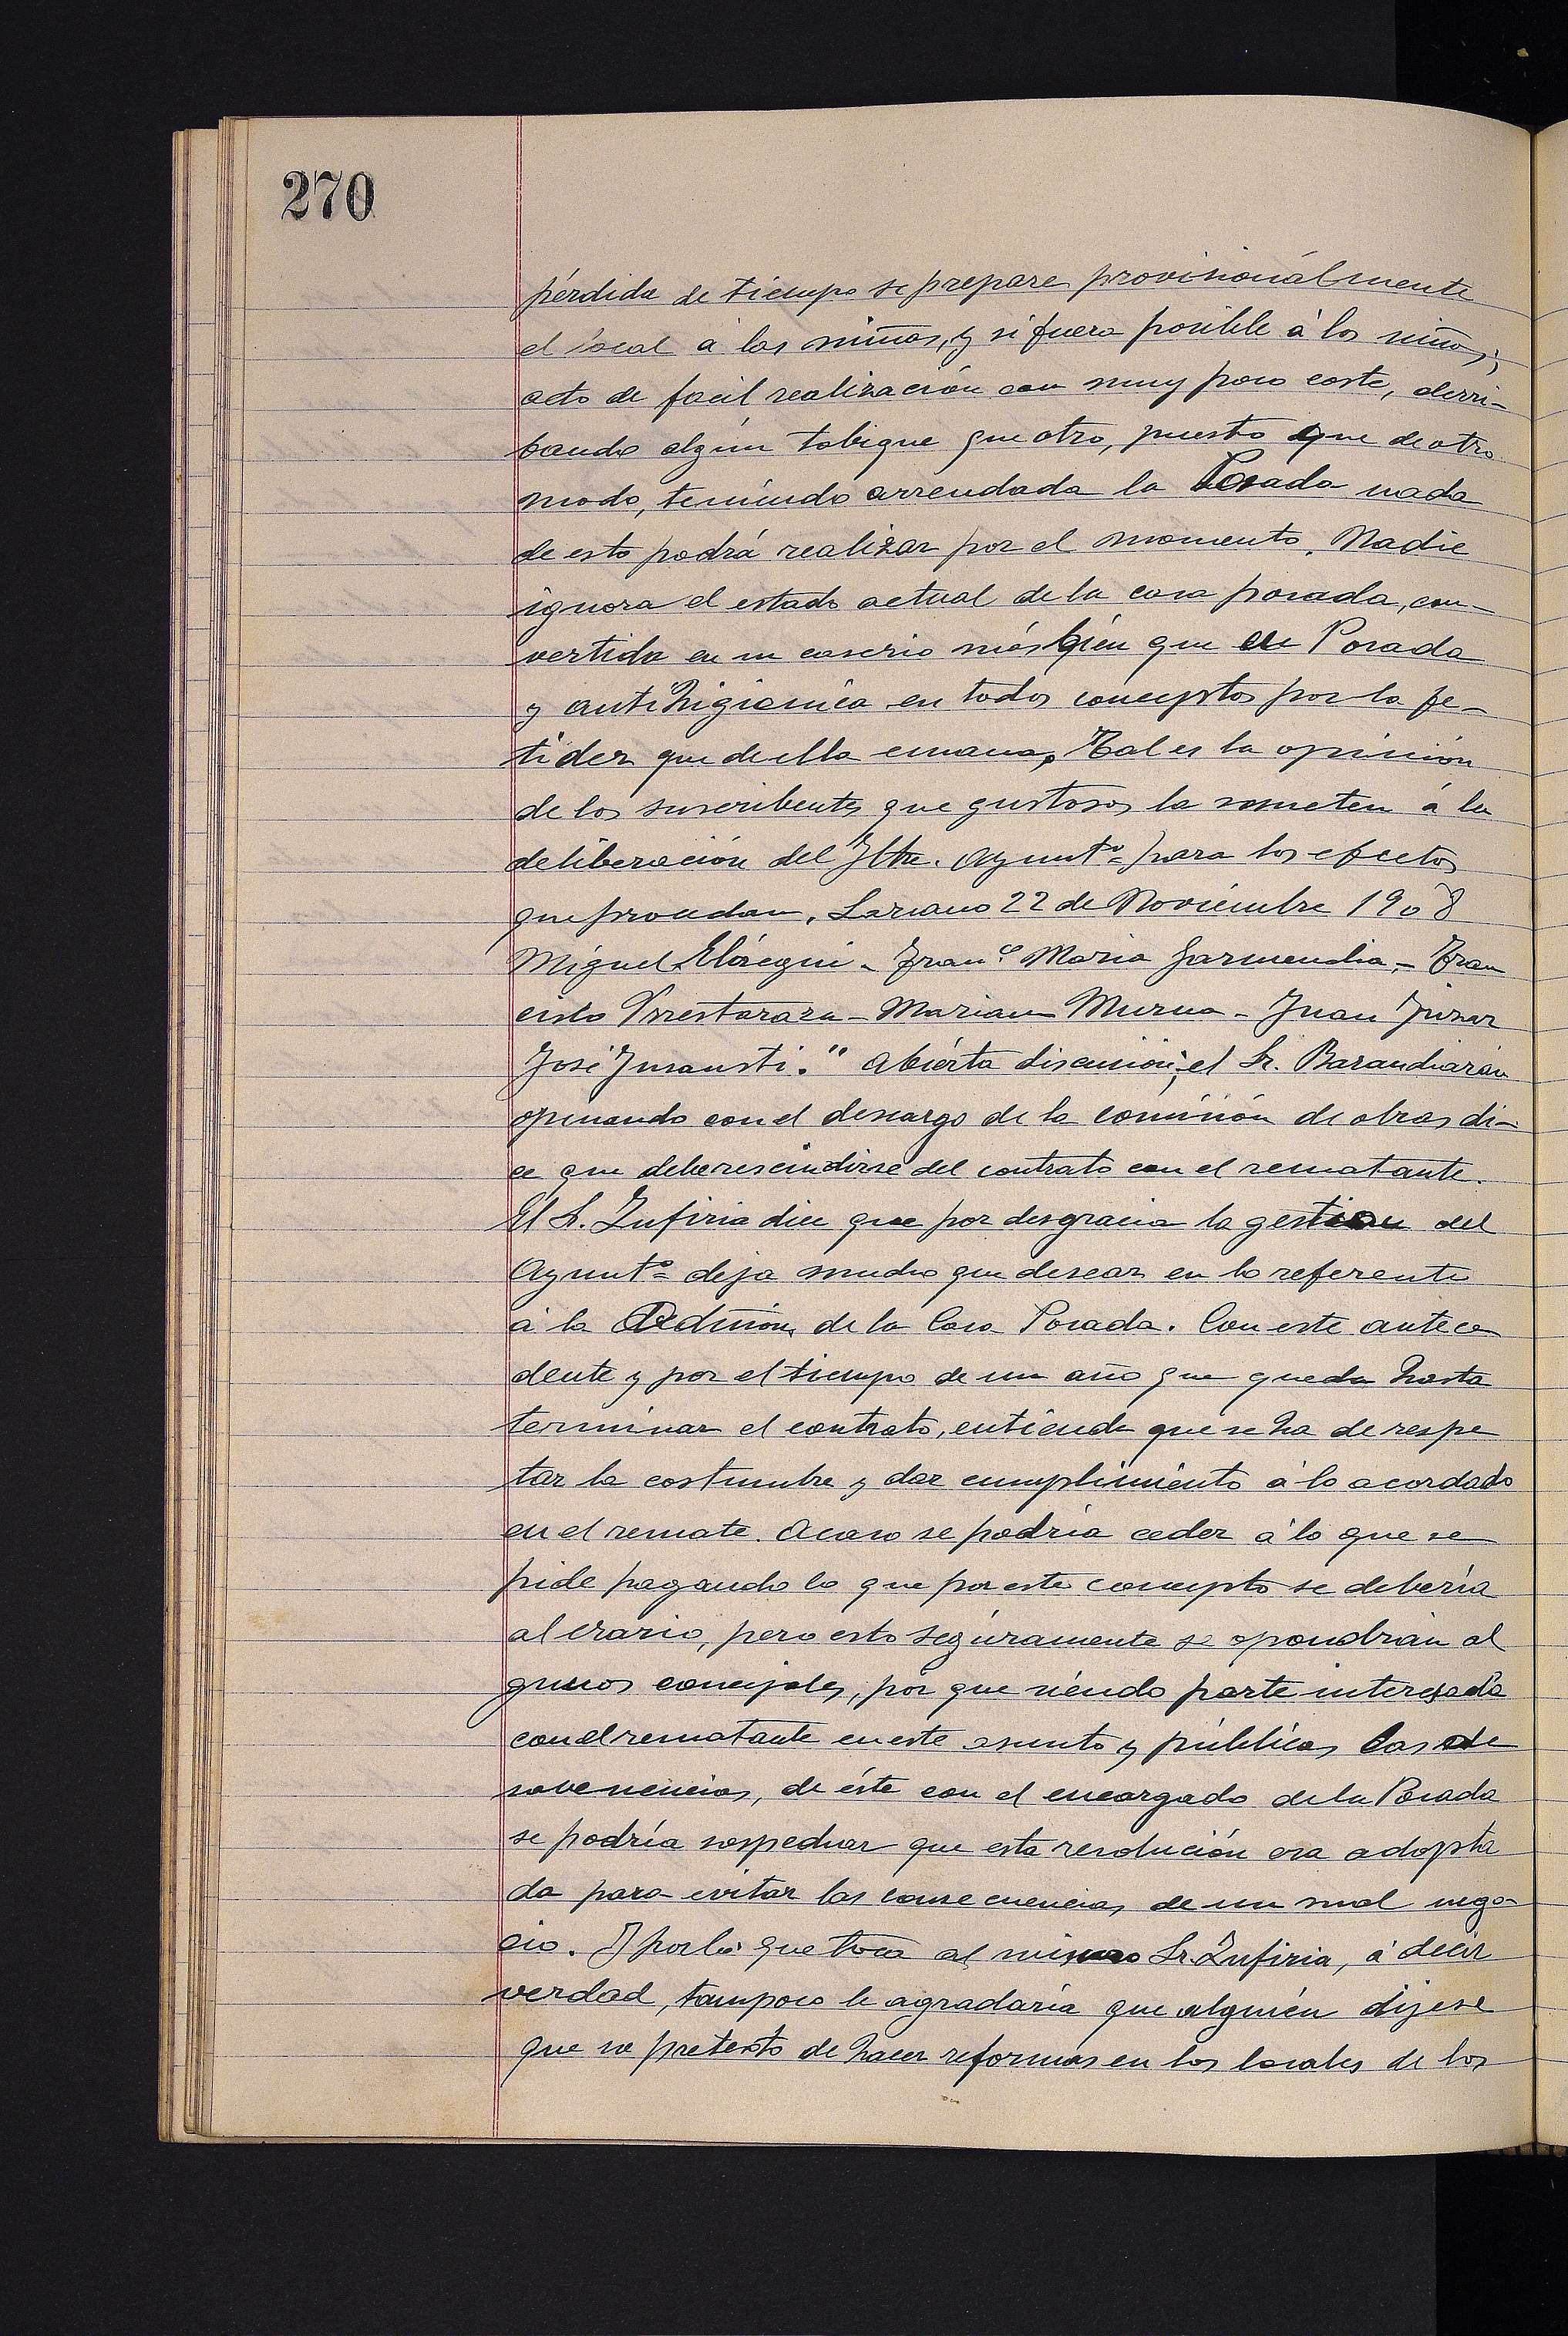 270
pérdida de tiempo se prepare provisionalmente
el local á las niñas, y si fuera posible á los niños;
acto de facil realización con muy poco coste, derri-
bando algún tabique que otro, puesto que de otro
modo, teniendo arrendada la Posada nada
de esto podrá realizar por el momento. Nadie
ignora el estado actual de la casa posada, con-
vertida en un caserio más bien que en Posada
y antihigiénica en todos conceptos por la fe-
tidez que de ella emana. Tal es la opinión
de los suscribentes que gustosos la someten á la
deliberación del Iltre. Ayuntº para los efectos
que procedan. Lazcano 22 de Noviembre 1908
Miguel Elósegui - Franco Maria Garmendia - Fran
cisco Irrestarazu - Mariano Murua - Juan
José Insausti." Abierta discusión, el Sr. Barandiarán
opinando con el descargo de la comisión de obras di-
ce que debe rescindirse del contrato con el rematante.
El Sr. Zufiria dice que por desgracia la gestion del
Ayuntº deja mucho que desear en lo referente
á la de la Casa Posada. Con este antece
dente y por el tiempo de un año que queda hasta
terminar el contrato, entiende que se ha de respe
tar la costumbre y dar cumplimiento á lo acordado
en el remate. Acaso se podría ceder á lo que se
pide pagando lo que por este concepto se debería
al erario, pero esto seguramente se opondrían al
gunos concejales, por que siendo parte interesada
con el rematante en este asunto y públicas las de
savenencias, de éste con el encargado de la Posada
se podría sospechar que esta resolución era adopta
da para evitar las consecuencias de un mal nego-
cio. Y por lo que toca al mismo Sr. Zufiria, á decir
verdad, tampoco le agradaría que alguién dijese
que so pretexto de hacer reformas en los locales de los